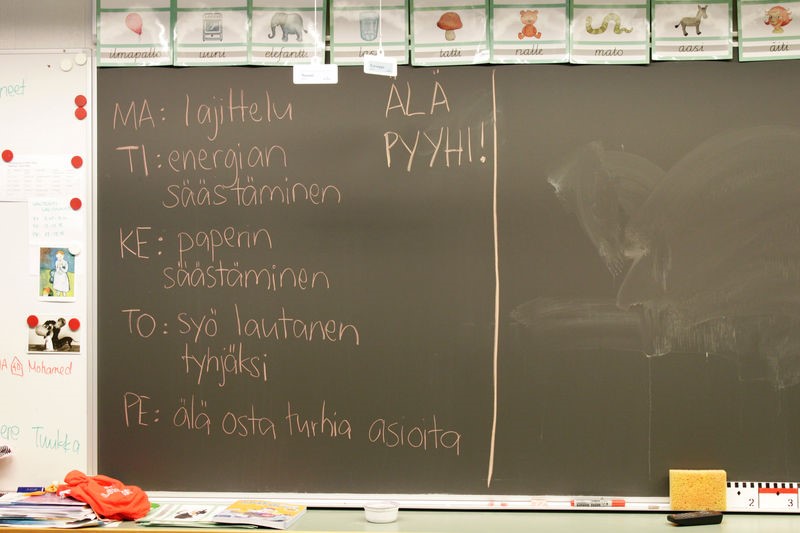 ilmapallo
uuni
elefantti
tatti
nalle
mato
aasi
äiti
MA: lajittelu
TI: energian
säästäminen
KE: paperin
säästäminen
TO: syö lautanen
tyhjäksi
PE: älä osta turhia asioita
ÄLÄ
PYYHI!
neet
Mohamed
Tuukka
2
3